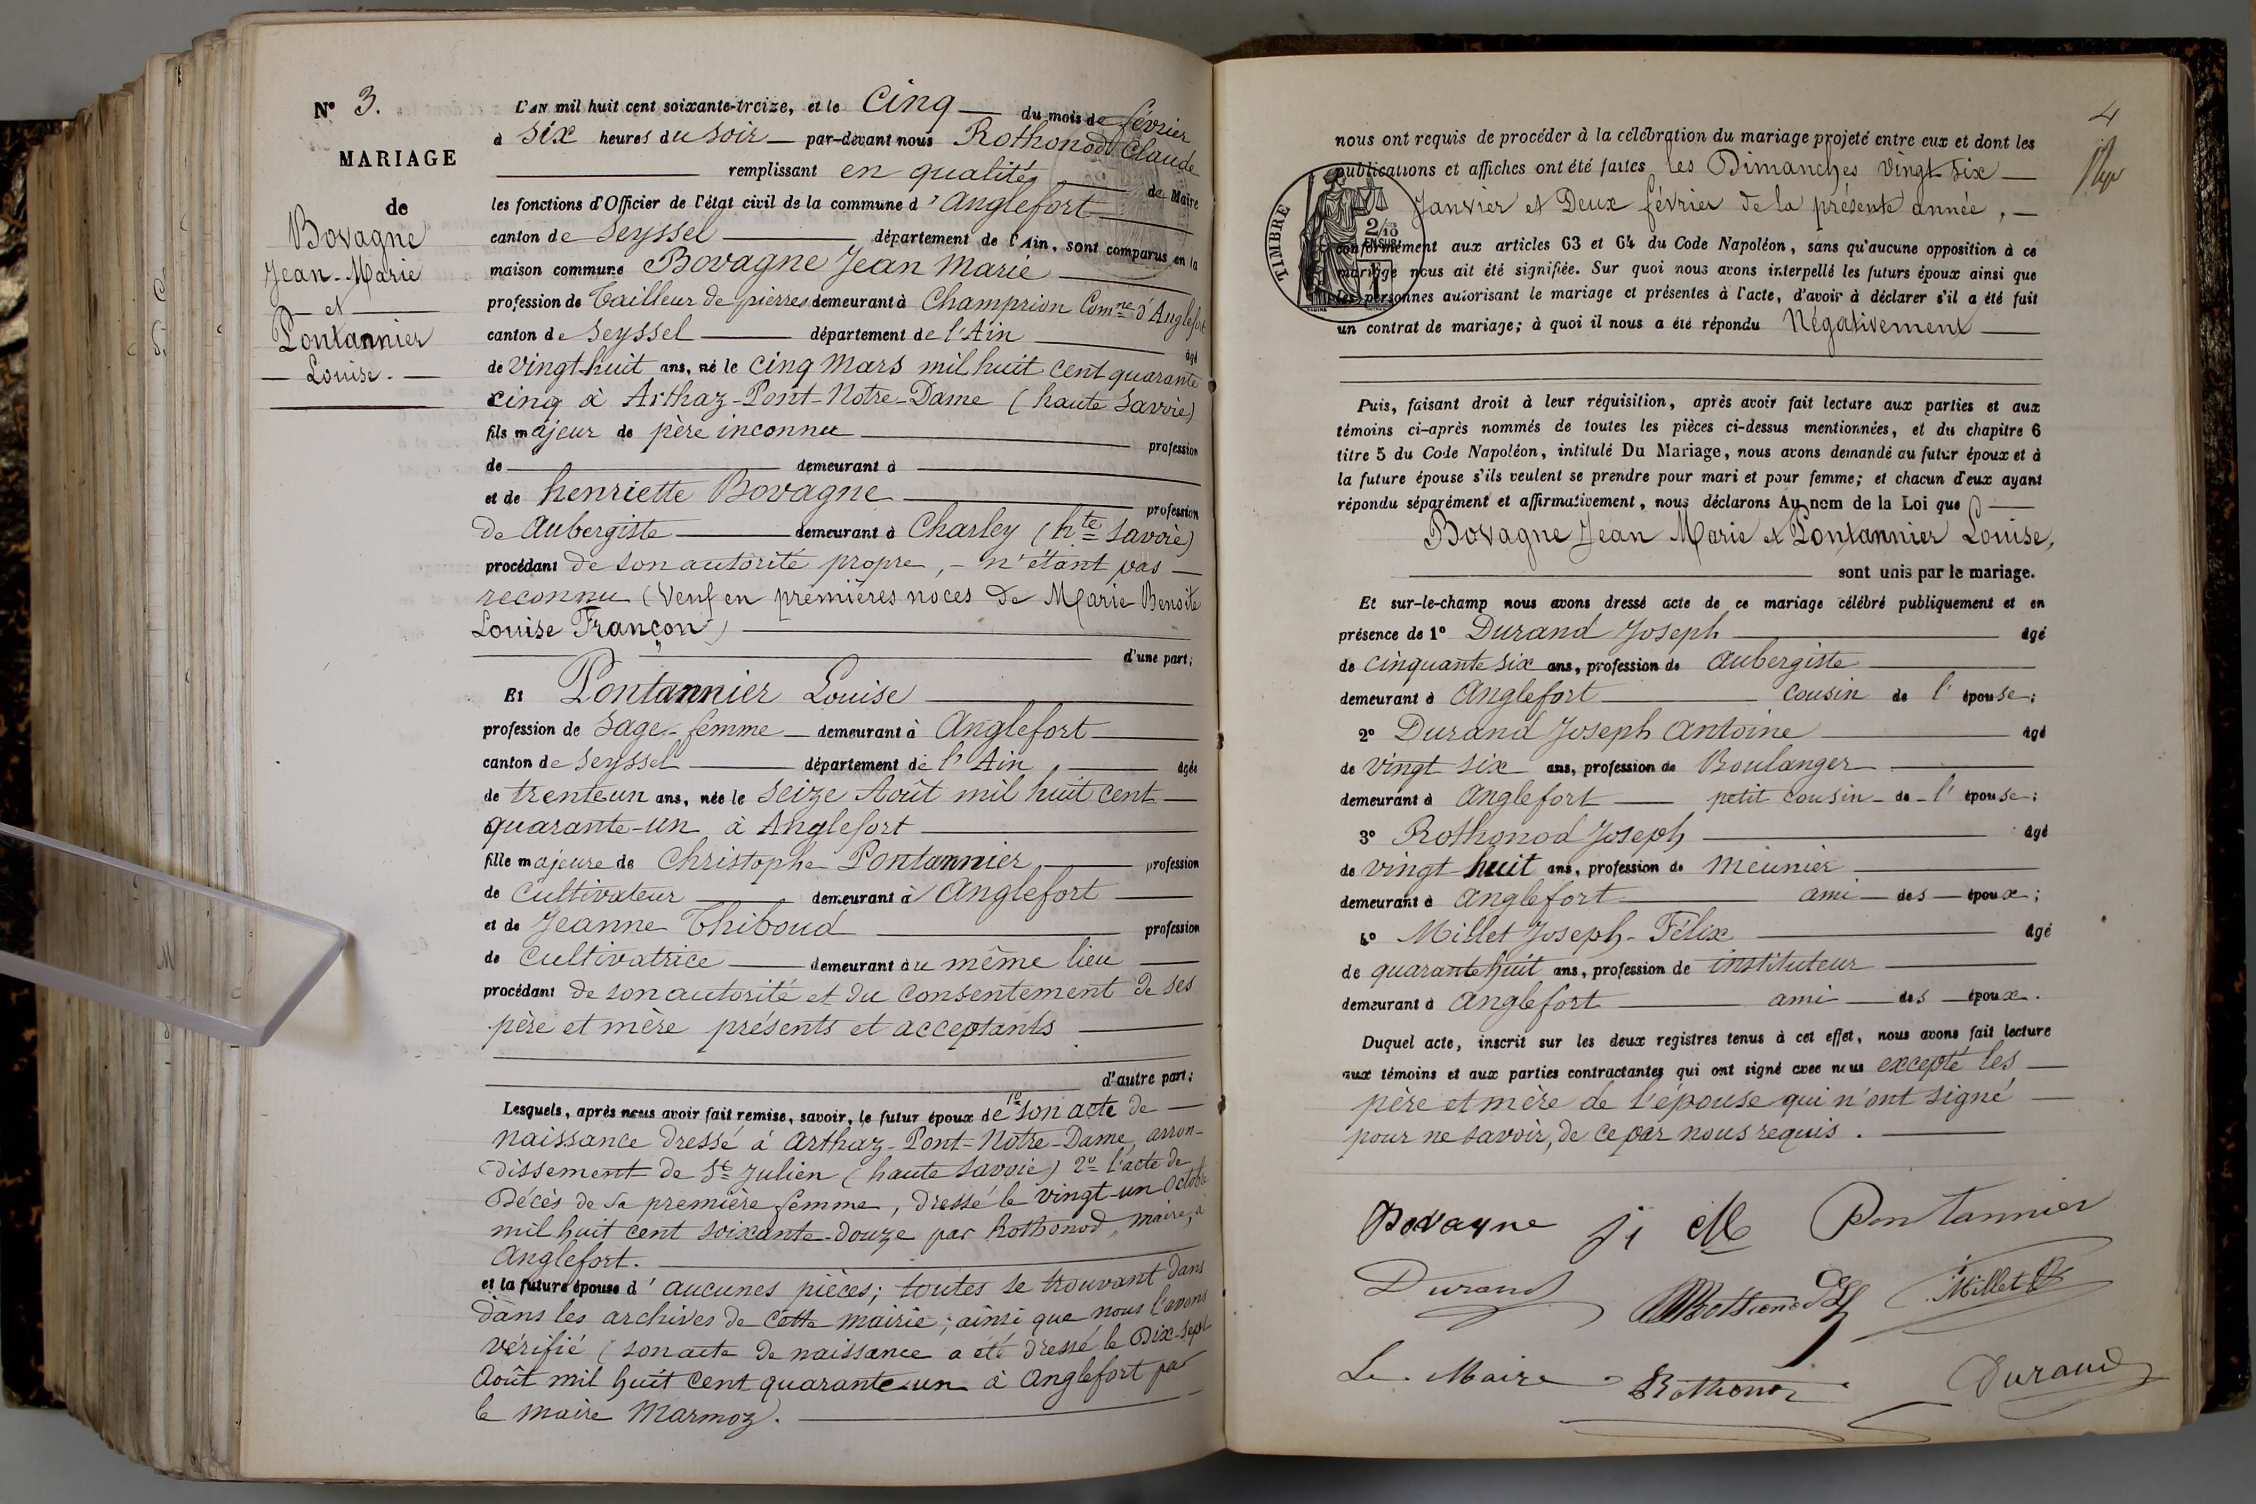 N° 3.
MARIAGE
de
Bovagne
Jean-Marie
et
Pontannier
Louise.
L'AN mil huit cent soixante-treize, et le Cinq du mois de février
à six heures du soir par-devant nous Rothonod Claude
remplissant en qualité de Maire
les fonctions d'Officier de l'état civil de la commune d'Anglefort
canton de Seyssel département de l'Ain, sont comparus en la
maison commune Bovagne Jean Marie
profession de Tailleur de pierres demeurant à Champrion Comne d'Anglefort
canton de Seyssel département de l'Ain âgé
de vingt huit ans, né le cinq Mars mil huit cent quarante
cinq à Arthaz-Pont-Notre-Dame (haute Savoie)
fils majeur de père inconnu profession
de demeurant à
et de henriette Bovagne profession
de aubergiste demeurant à Charley (hte Savoie)
procédant de son autorité propre, - n'étant pas
reconnu (Veuf en premières noces de Marie Benoite
Louise Françon)
d'une part;
Et Pontannier Louise
profession de Sage-femme demeurant à Anglefort
canton de Seyssel département de l'Ain âgée
de trente un ans, née le seize Août mil huit cent
quarante-un à Anglefort
fille majeure de Christophe Pontannier profession
de Cultivateur demeurant à Anglefort
et de Jeanne Thiboud profession
de Cultivatrice demeurant au même lieu
procédant de son autorité et du consentement de ses
père et mère présents et acceptants
d'autre part;
Lesquels, après nous avoir fait remise, savoir, le futur époux de 1° son acte de
naissance dressé à Arthaz-Pont-Notre-Dame, arron-
dissement de St Julien (haute Savoie) 2° l'acte de
Décès de sa première femme, dressé le vingt-un Octobre
mil huit cent soixante-douze par Rothonod, maire, à
Anglefort.
et la future épouse d'aucunes pièces; toutes se trouvant dans
dans les archives de cette mairie; ainsi que nous l'avons
vérifié (son acte de naissance a été dressé le Dix-sept
Août mil huit cent quarante-un à Anglefort par
le maire Marmoz).
4
nous ont requis de procéder à la célébration du mariage projeté entre eux et dont les
publications et affiches ont été faites les Dimanches vingt-six
Janvier et Deux février de la présente année,
TIMBRE
2/10
EN SUS
1
conformément aux articles 63 et 64 du Code Napoléon, sans qu'aucune opposition à ce
mariage nous ait été signifiée. Sur quoi nous avons interpellé les futurs époux ainsi que
les personnes autorisant le mariage et présentes à l'acte, d'avoir à déclarer s'il a été fait
un contrat de mariage; à quoi il nous a été répondu Négativement
Puis, faisant droit à leur réquisition, après avoir fait lecture aux parties et aux
témoins ci-après nommés de toutes les pièces ci-dessus mentionnées, et du chapitre 6
titre 5 du Code Napoléon, intitulé Du Mariage, nous avons demandé au futur époux et à
la future épouse s'ils veulent se prendre pour mari et pour femme; et chacun d'eux ayant
répondu séparément et affirmativement, nous déclarons Au nom de la Loi que
Bovagne Jean Marie et Pontannier Louise,
sont unis par le mariage.
Et sur-le-champ nous avons dressé acte de ce mariage célébré publiquement et en
présence de 1° Durand Joseph âgé
de cinquante six ans, profession de aubergiste
demeurant à Anglefort cousin de l'épouse;
2° Durand Joseph Antoine âgé
de vingt six ans, profession de Boulanger
demeurant à Anglefort petit cousin de l'épouse;
3° Rothonod Joseph âgé
de vingt huit ans, profession de meunier
demeurant à Anglefort ami des époux;
4° Millet Joseph-Félix âgé
de quarante huit ans, profession de instituteur
demeurant à Anglefort ami des époux.
Duquel acte, inscrit sur les deux registres tenus à cet effet, nous avons fait lecture
aux témoins et aux parties contractantes qui ont signé avec nous excepté les
père et mère de l'épouse qui n'ont signé
pour ne savoir, de ce par nous requis.
Bovagne j M Pontannier
Durand Rothonod Millet
Le Maire Rothonod Durand